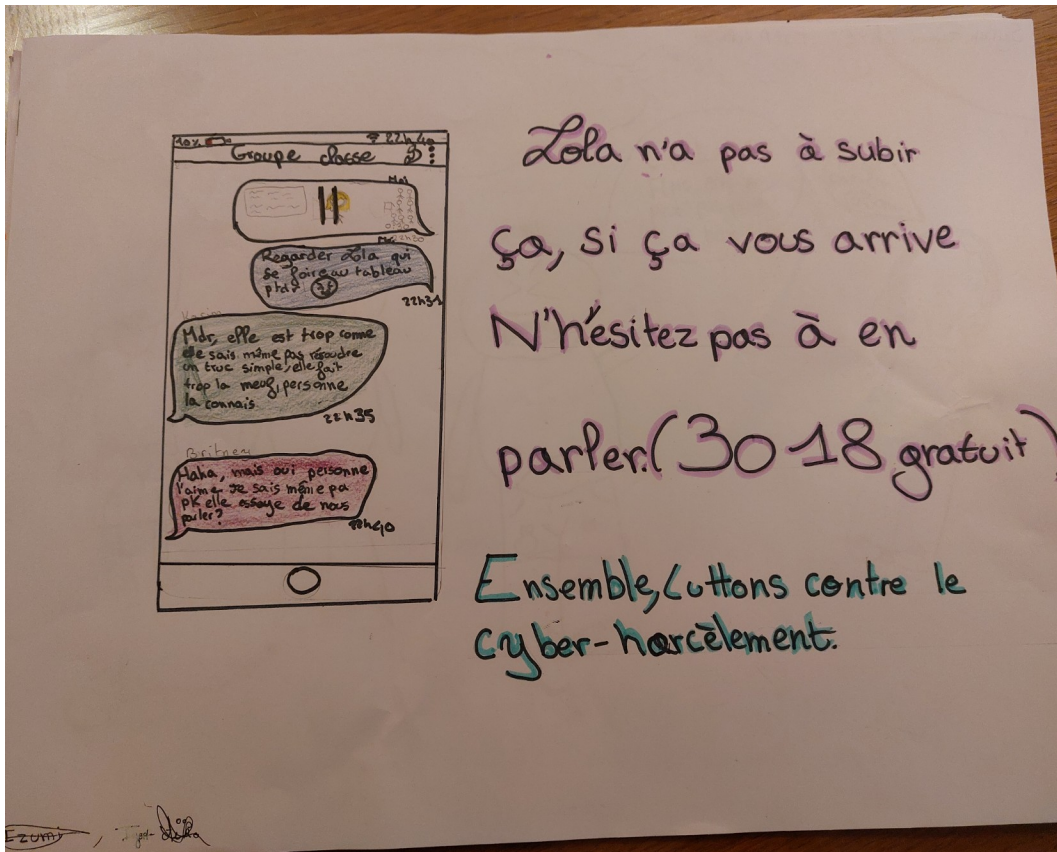 10% 22h40
Groupe classe
Moi
22h30
Moi
Regarder Lola qui
se foire au tableau
ptdr
22h31
Karim
Mdr, elle est trop conne
Je sais même pas résoudre
un truc simple, elle fait
trop la meuf, personne
la connais
22h35
Britney
Haha, mais oui personne
l'aime Je sais même pa
pk elle essaye de nous
parler?
22h40
Lola n'a pas à subir
ça, si ça vous arrive
N'hésitez pas à en
parler. (30 18 gratuit)
Ensemble, Luttons contre le
cyber-harcèlement.
Ezumi,